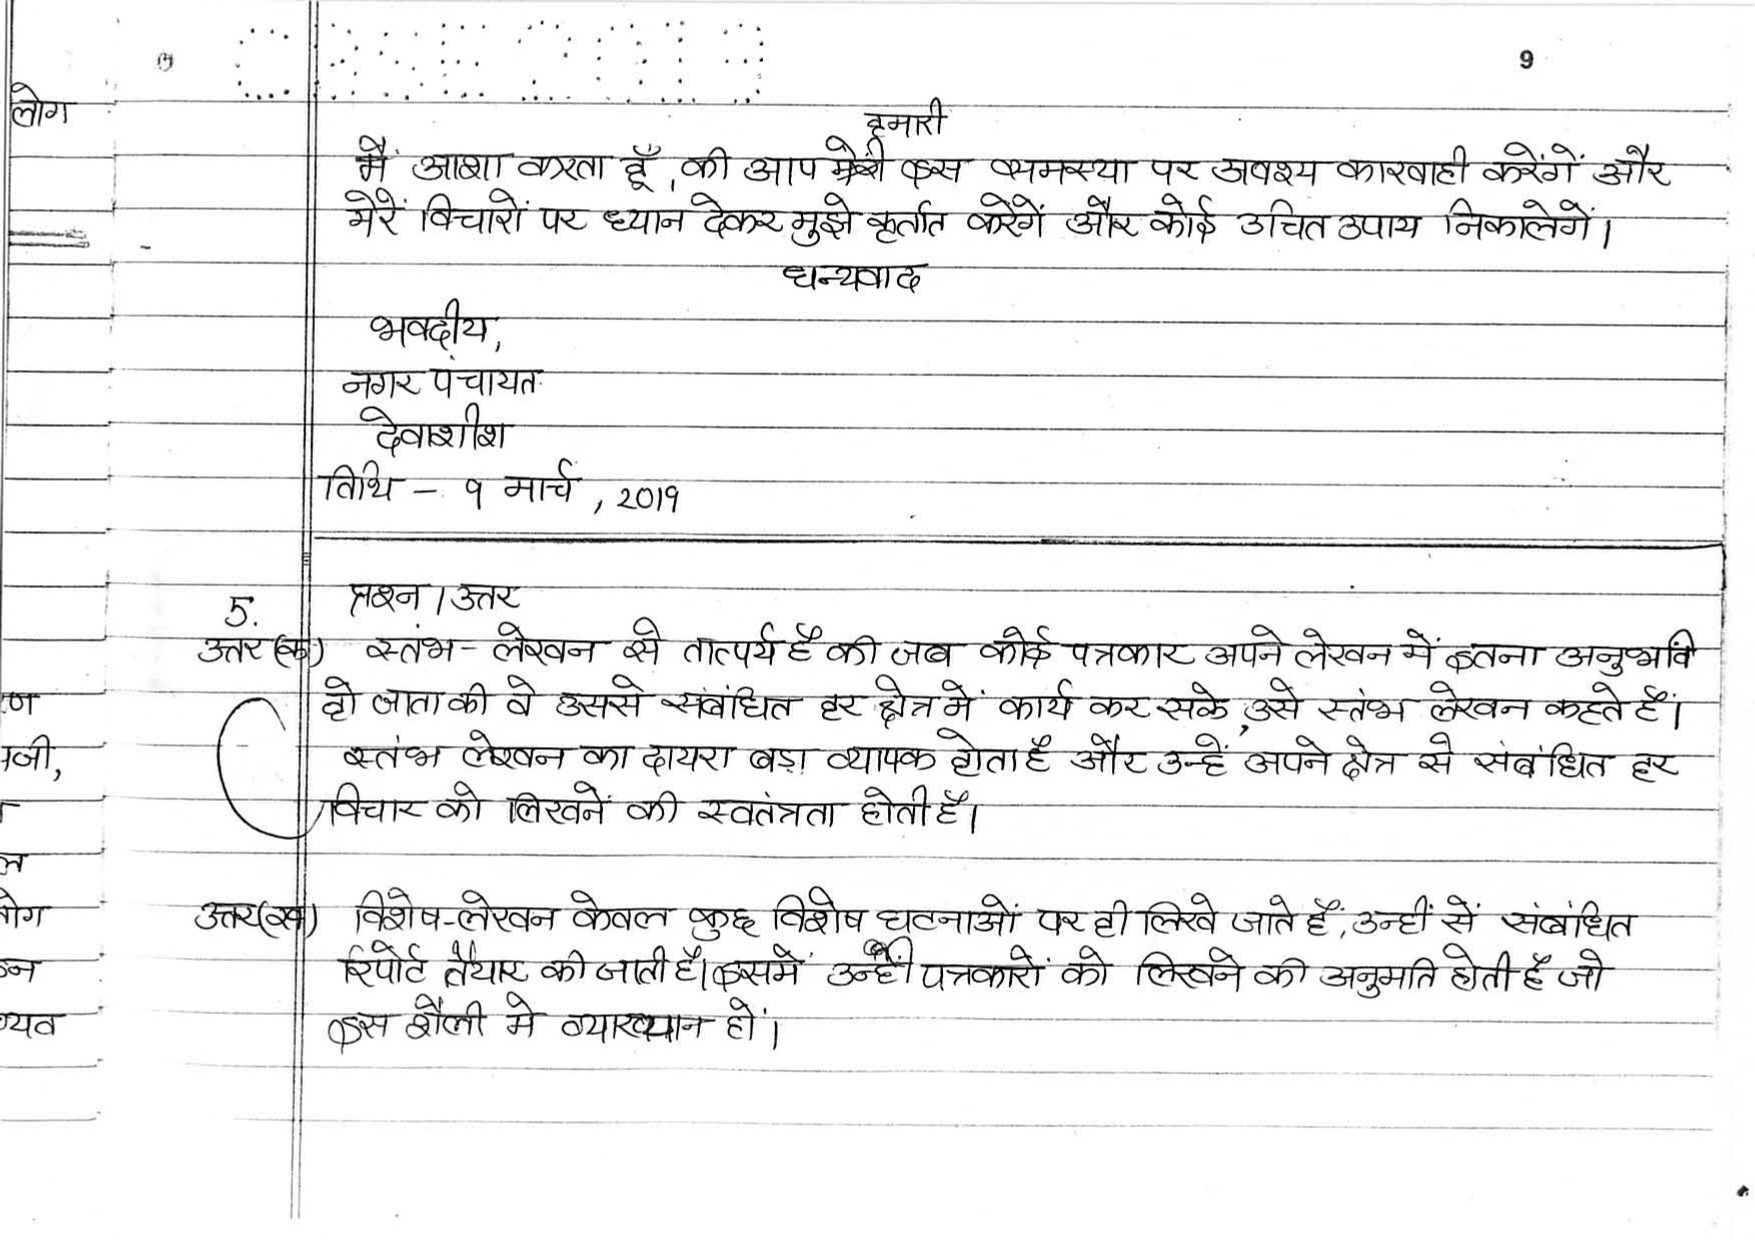 CBSE 2019
9
लोग
हमारी
मैं आशा करता हूँ, की आप मेरी इस समस्या पर अवश्य कारवाही करेंगें और
मेरें विचारों पर ध्यान देकर मुझे कृर्तात करेगें और कोई उचित उपाय निकालेगें।
धन्यवाद
भवदीय,
नगर पंचायत
देवाशीश
तिथि - ९ मार्च, 2019
5. प्रश्न।उत्तर
उत्तर(क) स्तंभ-लेखन से तात्पर्य है की जब कोई पत्रकार अपने लेखन में इतना अनुभवि
हो जाता की वे उससे संबंधित हर क्षेत्र में कार्य कर सके, उसे स्तंभ लेखन कहते हैं।
स्तंभ लेखन का दायरा बड़ा व्यापक होता है और उन्हें अपने क्षेत्र से संबंधित हर
विचार को लिखनें की स्वतंत्रता होती हैं।
उत्तर(ख) विशेष-लेखन केवल कुछ विशेष घटनाओं पर ही लिखे जाते हैं, उन्हीं सें संबंधित
रिपोर्ट तैयार की जाती है। इसमें उन्हीं पत्रकारों को लिखने की अनुमति होती है जो
इस शैली मे व्याख्यान हो।
ण
जी,
ल
लोग